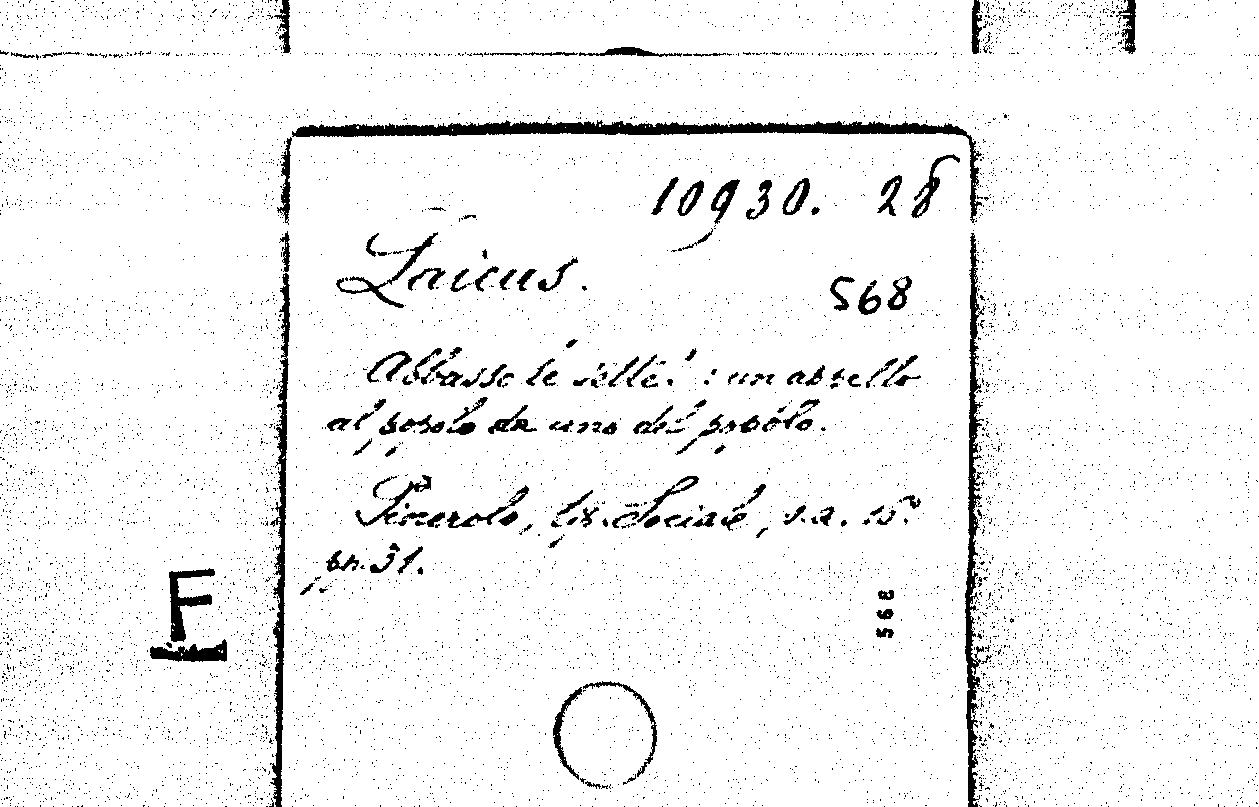 10930. 28
Laicus.
568
Abbasso le sette! : un appello
al popolo da uno del popolo.
Pinerolo, tip. Sociale, s.a. 15º
pp. 31.
568
F